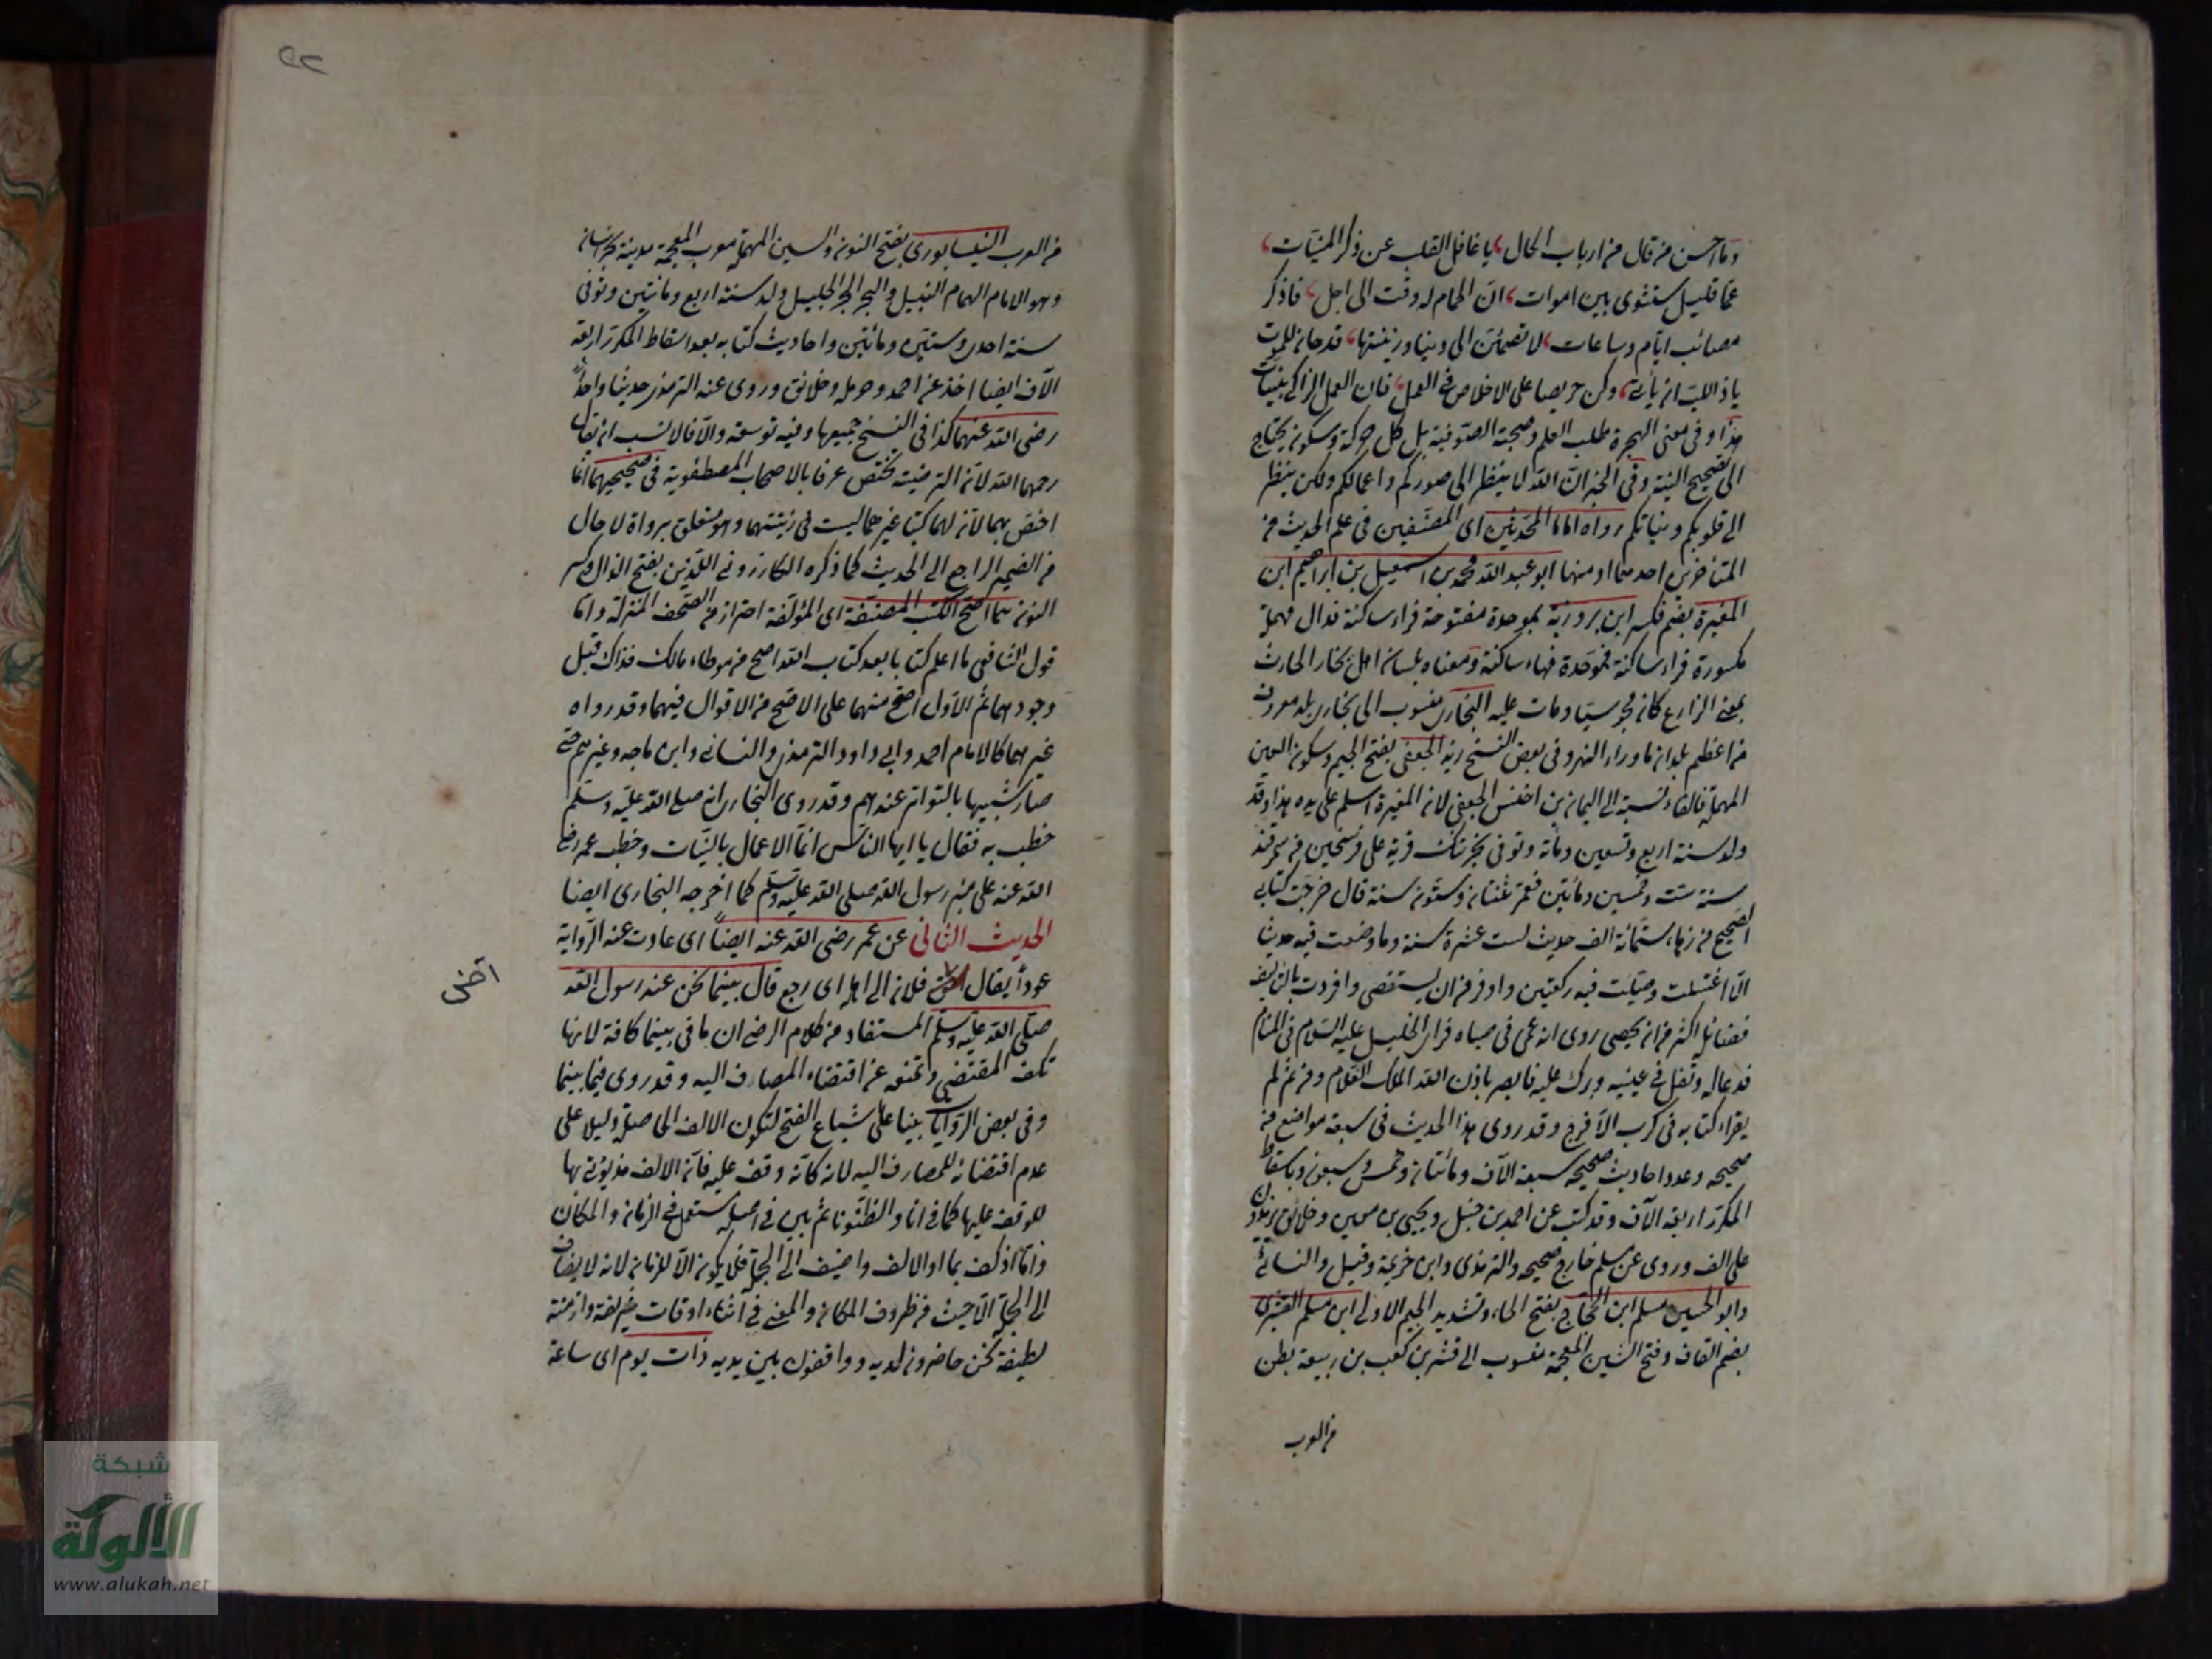 وما احسن من قال من ارباب الحال يا غافل القلب عن ذكر المنيات
عما قليل ستثوى بين اموات ان الحمام له وقت الى اجل فاذكر
مصائب ايام وساعات لا تطمئن الى دنيا وزينتها قد حان للموت
يا ذا اللب ان يأتي وكن حريصا على الاخلاص في العمل فان العمل الزاكي بنيات
هذا وفي معنى الهجرة طلب العلم وصحبة الصوفية بل كل حركة وسكون يحتاج
الى تصحيح النية وفي الخبر ان الله لا ينظر الى صوركم واعمالكم ولكن ينظر
الى قلوبكم ونياتكم رواه اماما المحدثين اى المصنفين في علم الحديث من
المتأخرين احدهما او منهما ابو عبد الله محمد بن اسمعيل بن ابراهيم ابن
المغيرة بضم فكسر ابن بردزبة بموحدة مفتوحة فراء ساكنة فدال مهملة
مكسورة فزاء ساكنة فموحدة فهاء ساكنة ومعناه بلسان اهل بخارا الحارث
بمعنى الزارع كان مجوسيا ومات عليه البخارى منسوب الى بخارى بلد معروف
من اعظم بلدان ما وراء النهر وفي بعض النسخ زيد الجعفي بفتح الجيم وسكون العين
المهملة فالفاء نسبة الى اليمان بن اخنس الجعفي لان المغيرة اسلم على يده هذا وقد
ولد سنة اربع وتسعين ومائة وتوفى بخرتنك قرية على فرسخين من سمرقند
سنة ست وخمسين ومائتين فعمر ثنتان وستون سنة قال خرجت كتابي
الصحيح من زهاء ستمائة الف حديث لست عشرة سنة وما وضعت فيه حديثا
الا اغتسلت وصليت فيه ركعتين واوفر من ان يستقصى وافردت بالتأليف
فضائله اكثر من ان يحصى روى انه عمى في صباه فرأى الخليل عليه السلام في المنام
فدعا له وتفل في عينيه وبرك عليه فابصر باذن الله الملك العلام ومن ثم لم
يقراء كتابه في كرب الا فرج وقد روى هذا الحديث في سبعة مواضع من
صحيحه وعدد احاديث صحيحه سبعة الآف ومائتان وخمس وسبعون وباسقاط
المكرر اربعة الآف وقد كتب عن احمد بن حنبل ويحيى بن معين وخلائق يزيدون
على الف وروى عن مسلم خارج صحيحه والترمذى وابن خزيمة وقيل والنسائى
وابو الحسين مسلم ابن الحجاج بفتح الحاء وتشديد الجيم الاولى ابن مسلم القشيرى
بضم القاف وفتح الشين المعجمة منسوب الى قشير بن كعب بن ربيعة بطن
من العرب
من العرب النيسابورى بفتح النون والسين المهملة معرب المعجمة مدينة بخراسان
وهو الامام الهمام النبيل والبحر الحبر الجليل ولد سنة اربع ومائتين وتوفى
سنة احدى وستين ومائتين واحاديث كتابه بعد اسقاط المكرر اربعة
الآف ايضا اخذ عن احمد وحرملة وخلائق وروى عنه الترمذى حديثا واحدا
رضى الله عنهما كذا في النسخ جميعها وفيه توسعة والا فالانسب ان يقال
رحمهما الله لان الترضية تختص عرفا بالاصحاب المصطفوية في صحيحيهما انما
اختص بهما لان لهما كتبا غيرهما ليست في رتبتهما وهو متعلق برواه لا حال
من الضمير الراجع الى الحديث كما ذكره الكازروني اللذين بفتح الذال وكسر
النون هما اصح الكتب المصنفة اى المؤلفة احتراز من الصحف المنزلة واما
قول الشافعى ما اعلم كتابا بعد كتاب الله اصح من موطاء مالك فذاك قبل
وجودهما ثم الاول اصح منهما على الاصح من الاقوال فيهما وقد رواه
غيرهما كالامام احمد وابي داود والترمذى والنسائى وابن ماجه وغيرهم حتى
صار شبيها بالتواتر عندهم وقد روى البخارى انه صلى الله عليه وسلم
خطب به فقال يا ايها الناس انما الاعمال بالنيات وخطب عمر رضى
الله عنه على منبر رسول الله صلى الله عليه وسلم كما اخرجه البخارى ايضا
الحديث الثانى عن عمر رضى الله عنه ايضا اى عادت عنه الرواية
عودا يقال فلان الى اهله اى رجع قال بينما نحن عند رسول الله
آض
صلى الله عليه وسلم المستفاد من كلام الرضى ان ما في بينما كافة لانها
تكف المقتضى وتمنعه عن اقتضاء المضاف اليه وقد روى فيما بينما
وفي بعض الروايات بينا على اشباع الفتح لتكون الالف الحاصلة دليلا على
عدم اقتضائه للمضاف اليه لانه كأنه وقف عليه فان الالف قد يؤتى بها
للوقف عليها كما في انا والظنونا ثم بين في اصله يستعمل في الزمان والمكان
واما اذا كف بما او الالف واضيف الى الجملة فلا يكون الا للزمان لانه لا يضاف
الى الجملة الا حيث من ظروف المكان والمعنى في اثناء اوقات شريفة وازمنة
لطيفة نحن حاضرون لديه وواقفون بين يديه ذات يوم اى ساعة
شبكة
الألوكة
www.alukah.net